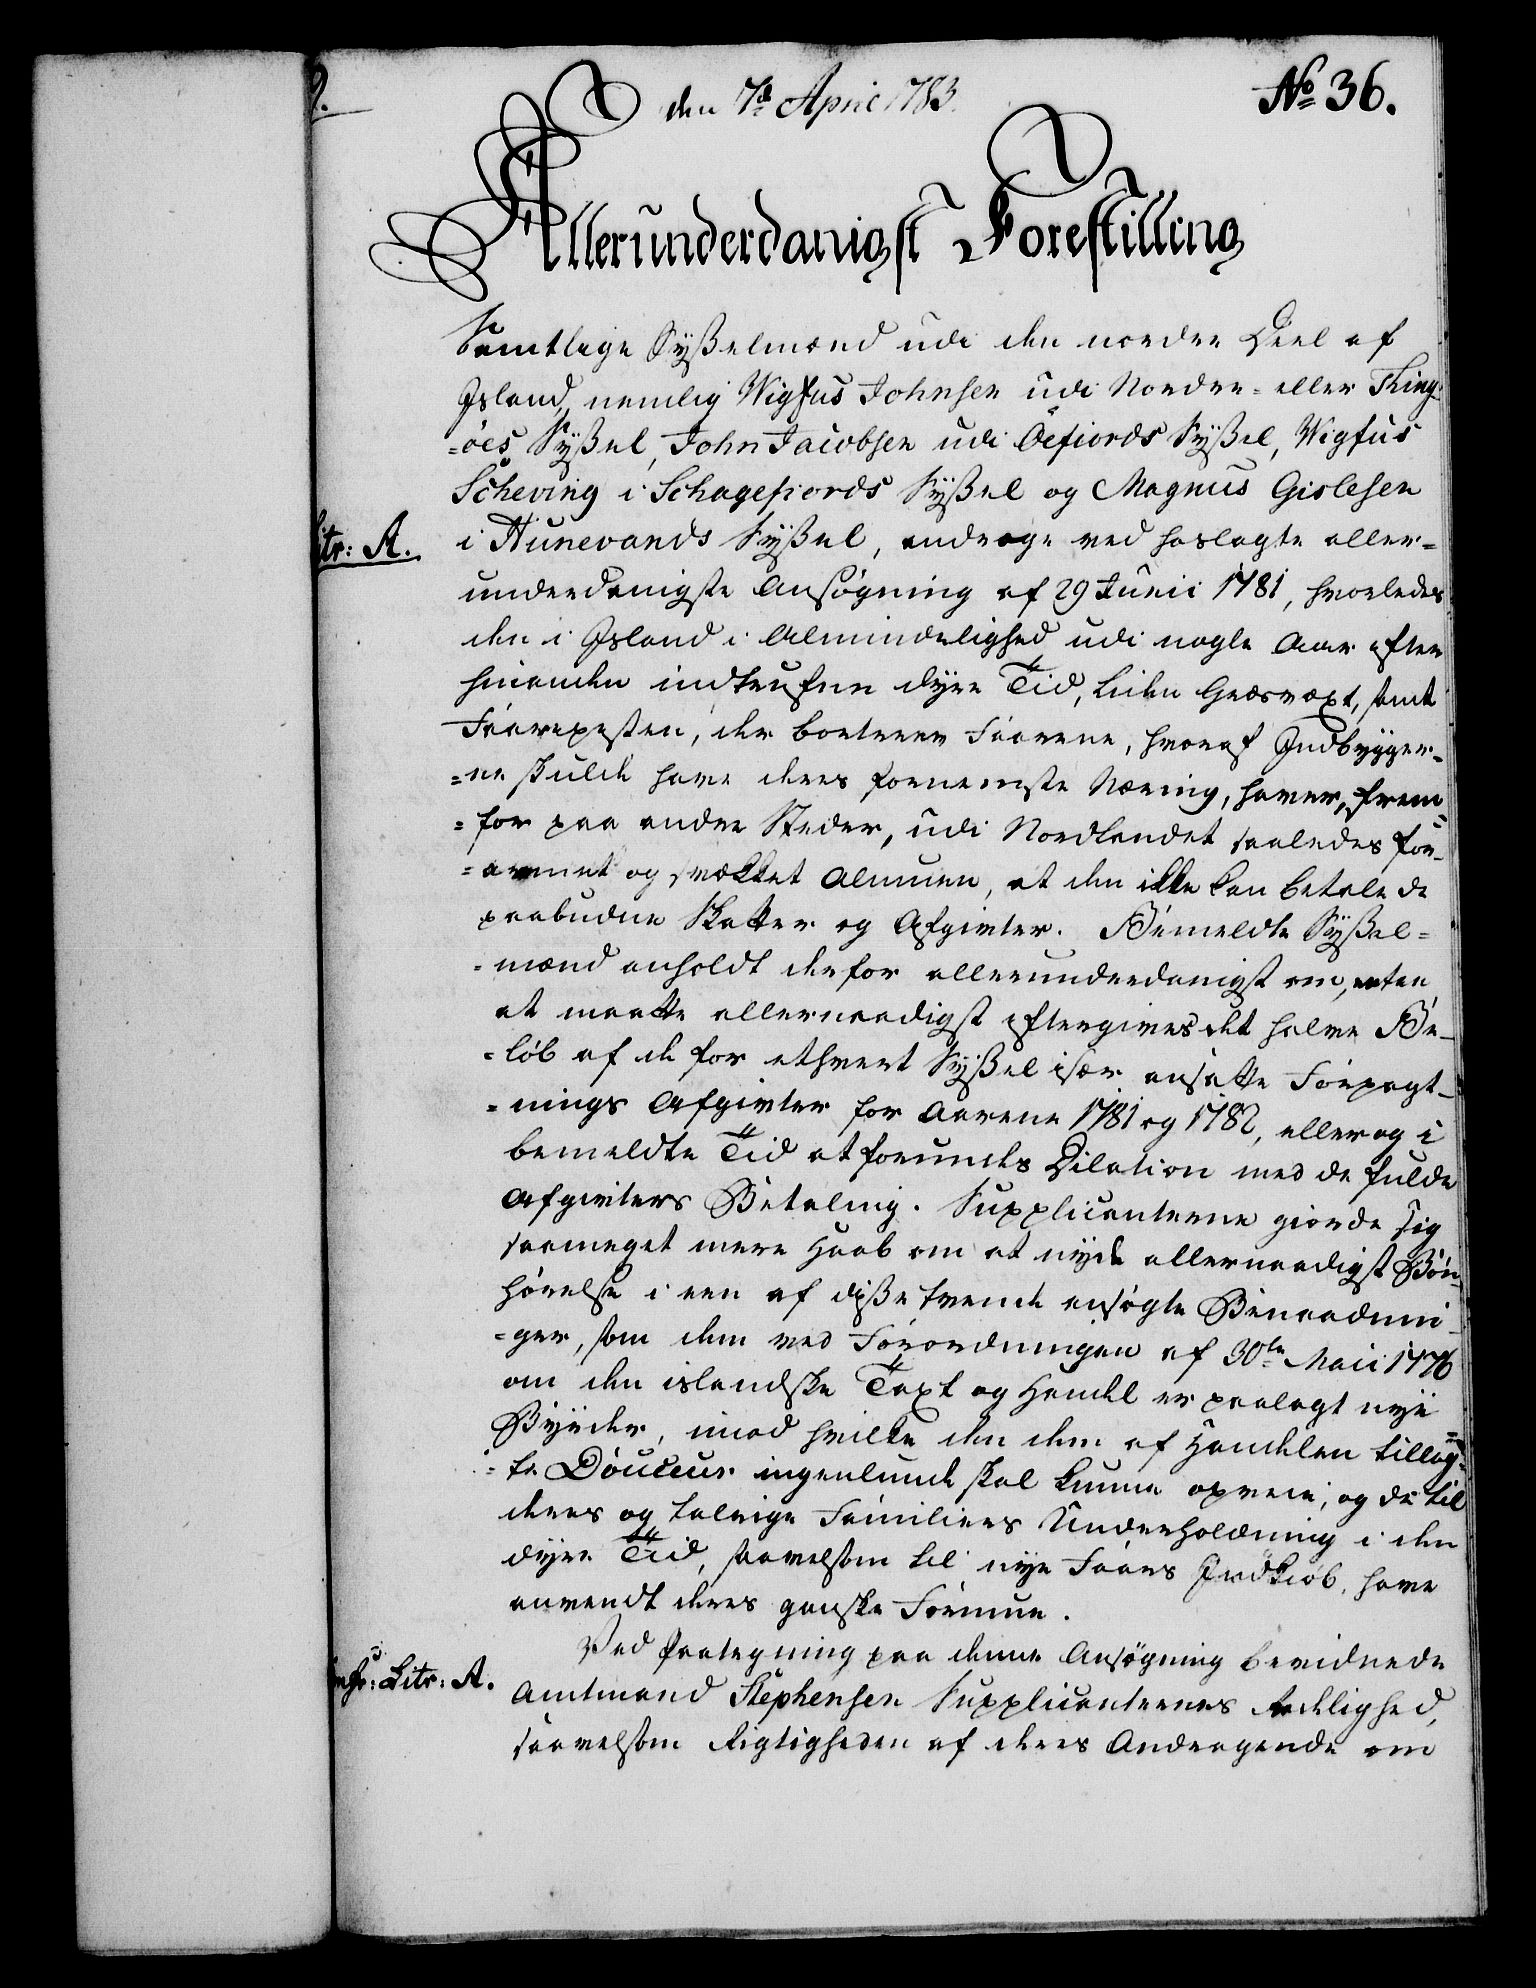 den 7de April 1783.
No 36.
Allerunderdanigst Forestilling
Samtlige Sysselmænd udi den norder Deel af
Island, nemlig Wigfus Johnsen udi Norder- eller Thing-
-öes Syßel, John Jacobsen udi Öefiords Syßel, Wigfus
Scheving i Schagefiords Syßel og Magnus Gislesen
Litr: A.
i Hunevands Syßel, andrage ved hoslagte aller-
underdanigste Ansøgning af 29 Junii 1781, hvorledes
den i Island i Almindelighed udi nogle Aar efter
hinanden indtrufne dyre Tid, liden Græsvæxt, samt
Faarepesten, der borttren Faarene, hvoraf Indbygger-
-ne skulde have deres fornemste Næring, haver, frem-
-for paa andre Steder, udi Nordlandet saaledes for-
-armet og svækket Almuen, at den ikke kan betale de
paabudne Skatter og Afgivter. Bemeldte Syßel-
-mænd anholdt derfor allerunderdanigst om, enten
at maatte allernaadigst eftergives det halve Be-
-løb af de for ethvert Syßel især ansatte Forpagt-
-nings Afgivter for Aarene 1781 og 1782, eller og i
bemeldte Tid at forundes Dilation med de fulde
Afgivters Betaling. Supplicanterne giorde sig
saameget mere Haab om at nyde allernaadigst Bøn-
hørelse i een af diße tvende ansøgte Benaadnin-
-ger, som dem ved Forordningen af 30te Maii 1776
om den islandske Taxt og Handel er paalagt nye
Byrder, imod hvilke den dem af Handelen tillag-
-te Douceur ingenlunde skal kunne opveie, og de til
deres og talrige Familiers Underholdning i den
dyre Tid, saavelsom til nye Faars Indkiøb, have
anvendt deres ganske Formue.
Ved Paategning paa denne Ansøgning bevidnede
Litr: A.
Amtmand Stephensen Supplicanternes Redelighed,
saavelsom Rigtigheden af deres Andragende om